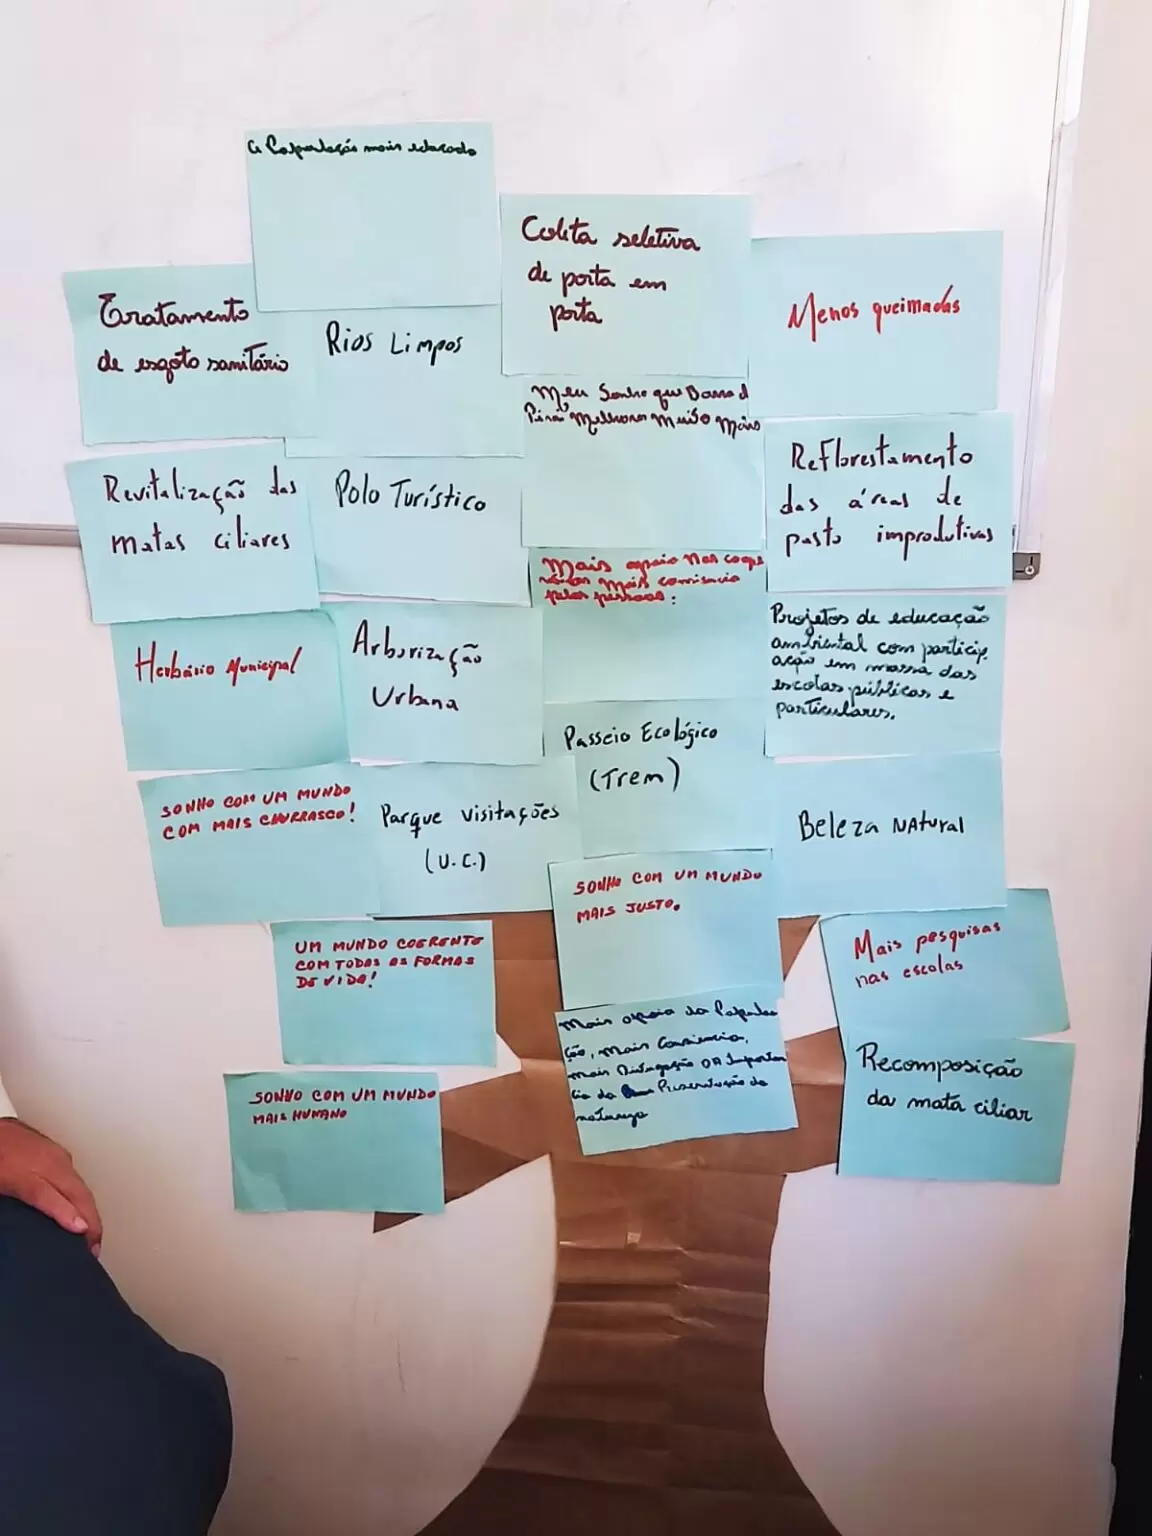 a População mais educada
Coleta seletiva
de porta em
porta
Menos queimadas
Tratamento
de esgoto sanitário
Rios Limpos
Meu Sonho que Barra d
Piraí Melhora Muito Mais
Revitalização das
matas ciliares
Polo Turístico
Reflorestamento
das áreas de
pasto improdutivas
Mais apoio nas coope
mais
pelas pessoas:
Herbário Municipal
Arborização
Urbana
Projetos de educação
ambiental com particip.
ação em massa das
escolas públicas e
particulares.
Passeio Ecológico
(Trem)
SONHO COM UM MUNDO
COM MAIS CHURRASCO!
Parque visitações
(U.C.)
Beleza Natural
SONHO COM UM MUNDO
MAIS JUSTO.
UM MUNDO COERENTE
COM TODAS AS FORMAS
DE VIDA!
Mais pesquisas
nas escolas
Mais apoio da Popula
ção, mais Consiencia,
mais Divugação DA Importan
cia da Preservação da
natureza
Recomposição
da mata ciliar
SONHO COM UM MUNDO
MAIS HUMANO